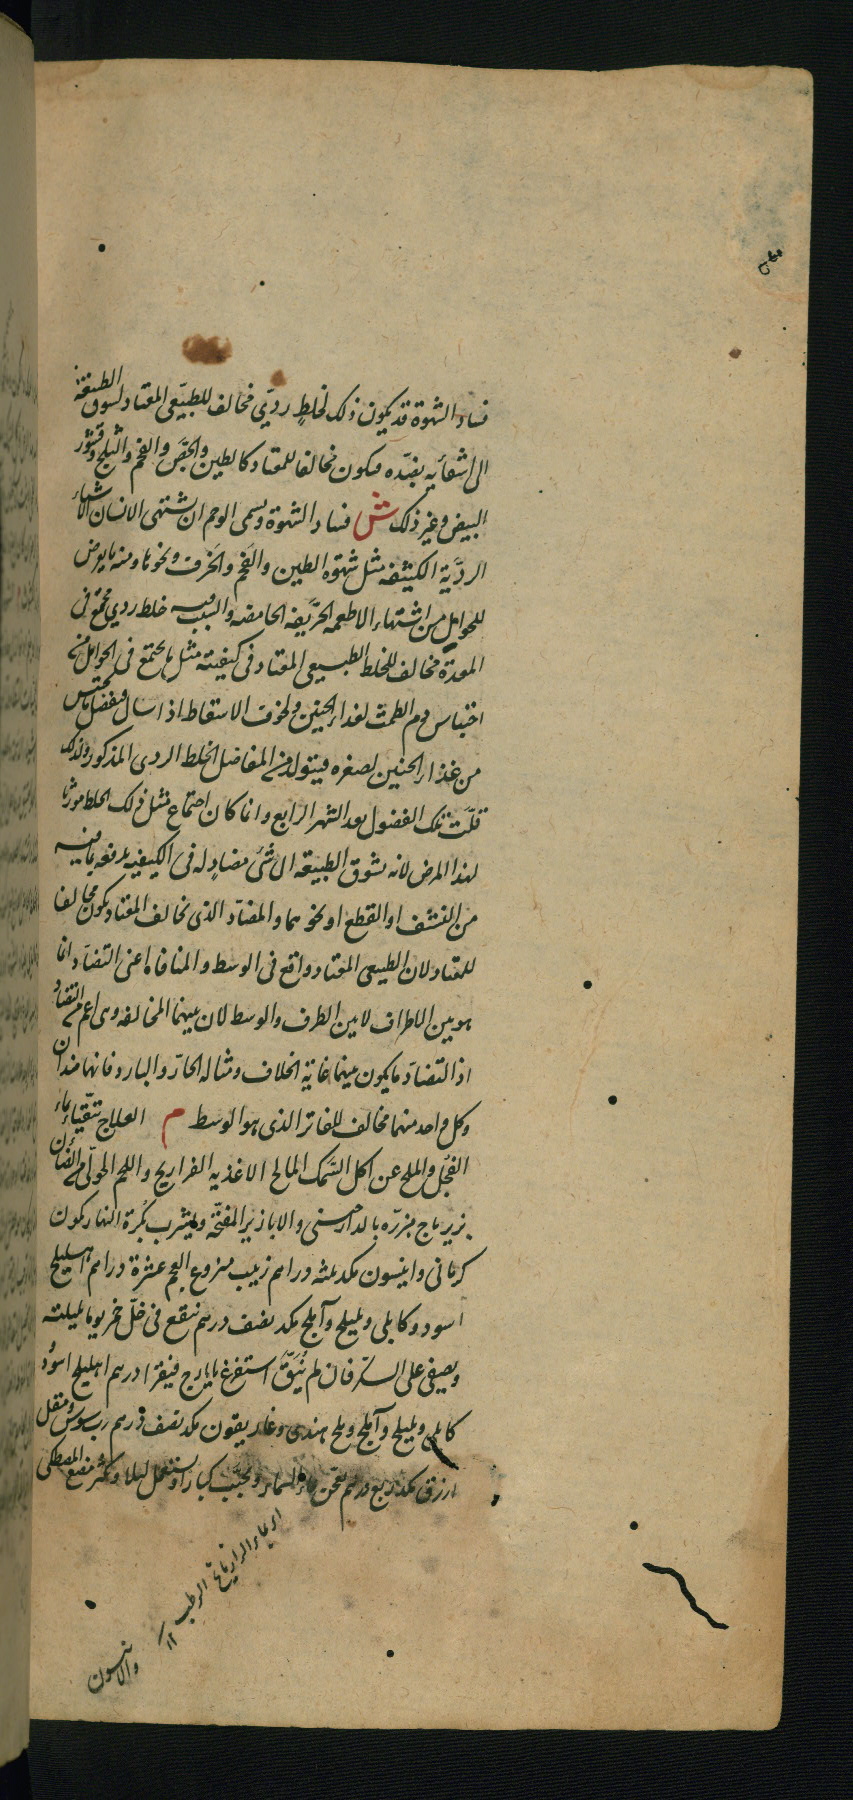 فساد الشهوة قد يكون ذلك لخلط ردي مخالف للطبيعي المعتاد لسوق الطبيعة
الى اشفائيه بضده فيكون مخالفا للمعتاد كالطين والجص والفحم والثلج وقشور
البيض وغير ذلك ش فساد الشهوة ويسمى الوحم ان يشتهى الانسان الاشياء
الرديّة الكثيفه مثل شهوة الطين والفحم والخزف ونحوها ومنه ما يعرض
للحوامل من اشتهاء الاطعمه الحرّيفه الحامضه والسبب فيه خلط ردي مجتمع فى
المعدة مخالف للخلط الطبيعى المعتاد فى كيفيته مثل ما يجتمع فى الحوامل من
احتباس دم الطمث لغذاء الجنين ولخوف الاسقاط اذا سال فيفضل ما يحتبس
من غذاء الجنين لصغره فيتولد من الفاضل الخلط الردى المذكور ولذلك
قلّت تلك الفضول بعد الشهر الرابع وانما كان اجتماع مثل ذلك الخلط مورثا
لهذا المرض لانه يشوق الطبيعة الى شئ مضاد له فى الكيفيه يدفعه بما فيه
من النشف او القطع او نحوهما والمضاد الذى يخالف المعتاد يكون مخالفا
للمعتاد لان الطبيعى المعتاد واقع فى الوسط والمنافاة اعنى التضاد انما
هو بين الاطراف لا بين الطرف والوسط لان بينهما المخالفه وهى اعم من التضاد
اذ التضاد ما يكون بينهما غاية الخلاف ومثاله الحارّ والبارد فانهما ضدان
وكل واحد منهما مخالف للفاتر الذى هو الوسط م العلاج تنقياء بماء
الفجل والملح عن اكل السمك المالح الاغذيه الفراريج واللحم الحولى من الضان
بزيرباج مبزره بالدارصينى والابازير المفتحّة ويشرب بكرة النهار كمون
كرمانى وانيسون مكد ثلثه دراهم زبيب منزوع العجم عشرة دراهم اهليلج
اسود وكابلى وبليلج وآملج مكد نصف درهم ينقع فى خل خمر يوما بليلته
ويصفى على السكر فان لم يُنَقّ استفرغ بايارج فيقرا درهم اهليلج اسود
كابلى وبليلج وآملج وملح هندى وغاريقون مكد نصف درهم رب سوس ومقل
ازرق مكد ربع درهم يعجن بماء السمار ويحبّب كبارا ويستعمل ليلا ويكثر مضغ المصطكى
الرازيانج الرطب
والانيسون